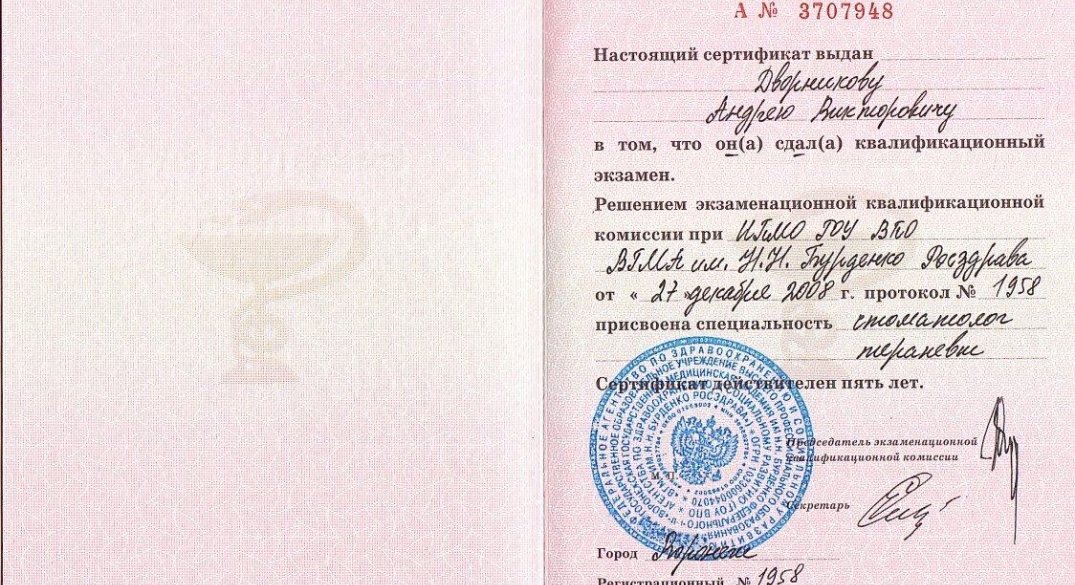 А № 3707948
Настоящий сертификат выдан
Дворникову
Андрею Викторовичу
в том, что он(а) сдал(а) квалификационный
экзамен.
Решением экзаменационной квалификационной
комиссии при ИПМО ГОУ ВПО
ВГМА им. Н.Н. Бурденко Росздрава
от « 27 » декабря 2008 г. протокол № 1958
присвоена специальность стоматолог
терапевт
Сертификат действителен пять лет.
Председатель экзаменационной
квалификационной комиссии
Секретарь
Город Воронеж
Регистрационный № 1958